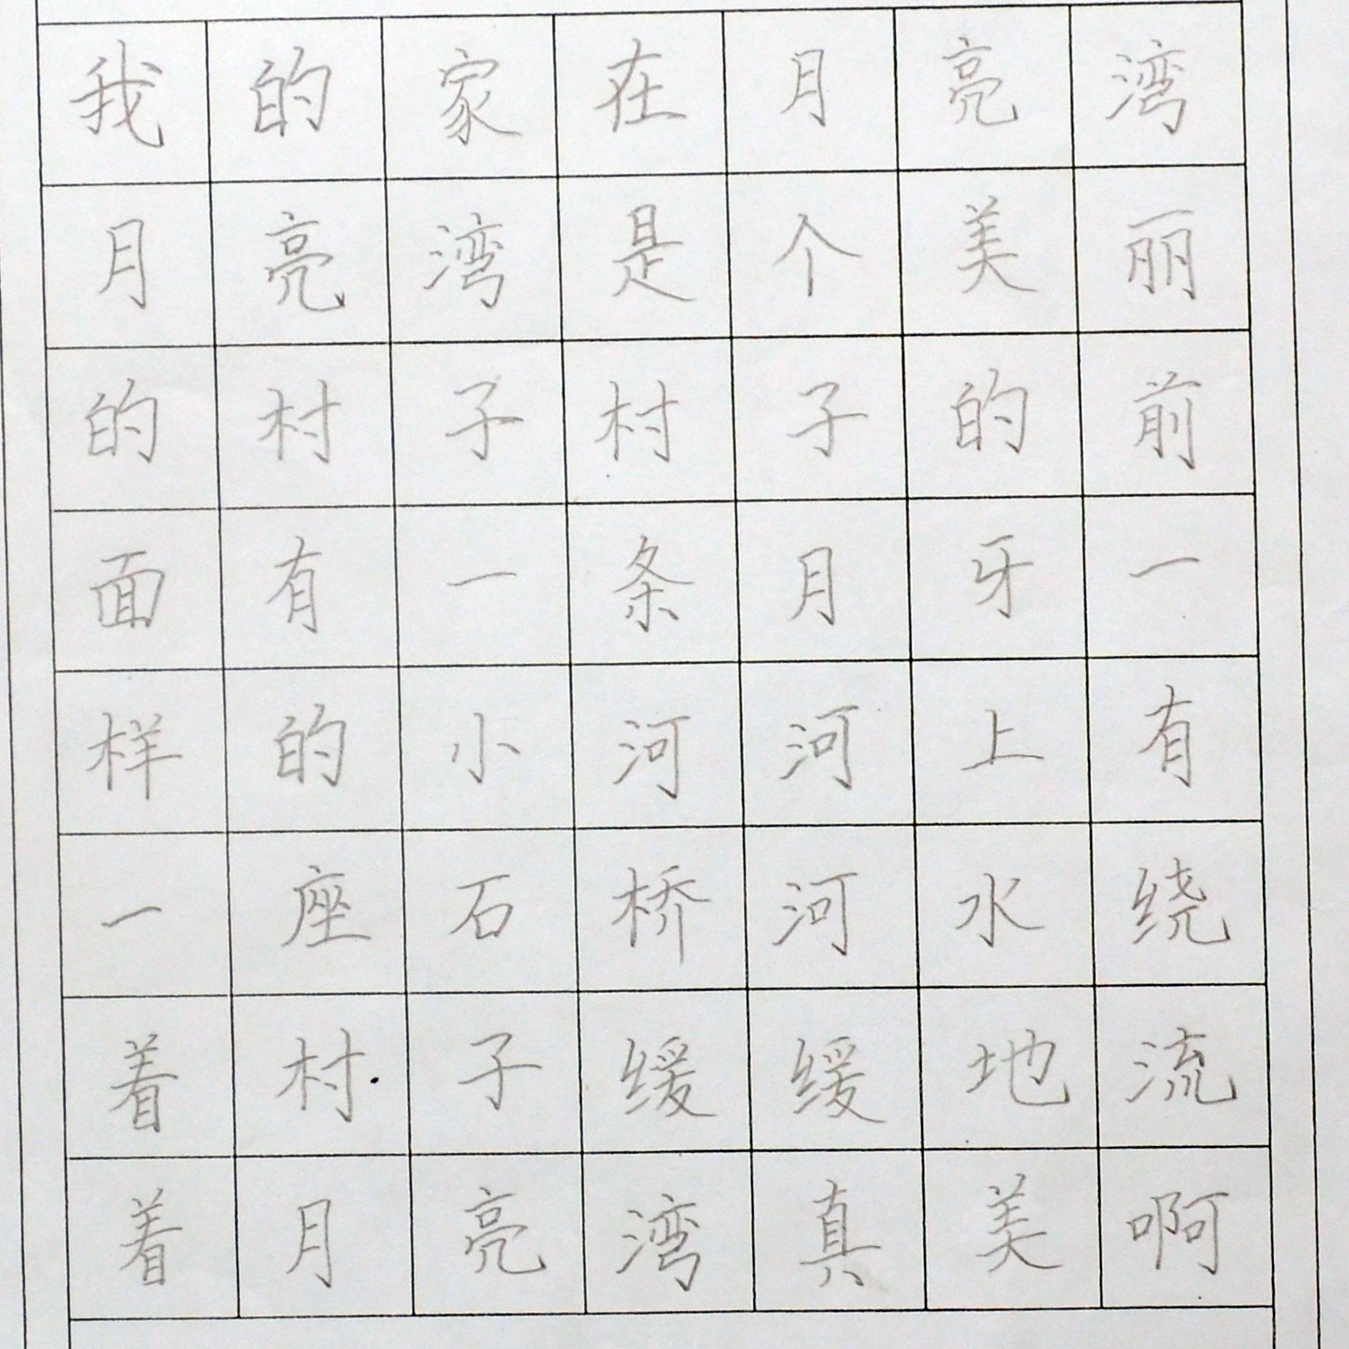 我的家在月亮湾
月亮湾是个美丽
的村子村子的前
面有一条月牙一
样的小河河上有
一座石桥河水绕
着村子缓缓地流
着月亮湾真美啊